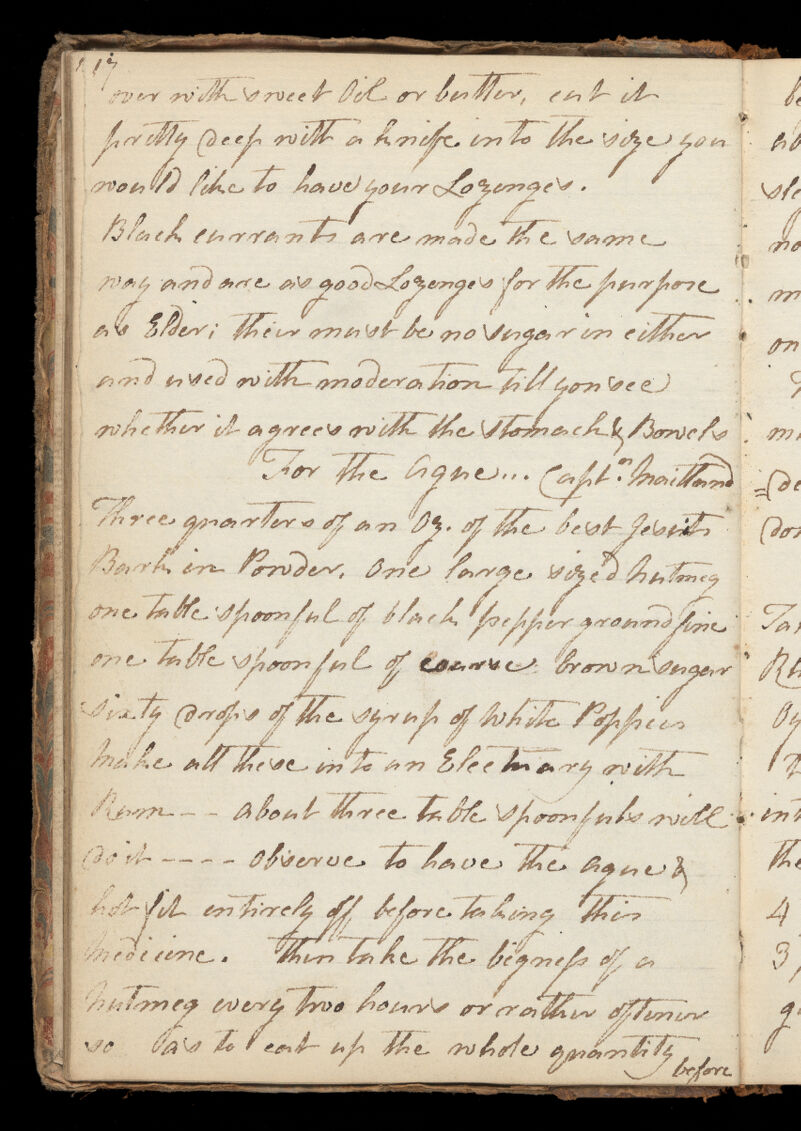 17
over with sweet Oil or butter, cut it
pretty deep with a knife into the size you
would like to have your Lozenges.
Black currants are made the same
way and are as good Lozenges for the purpose
as Elder; their must be no sugar in either
and used with moderation till you see
whether it agrees with the stomach & Bowels
For the Ague... Captn. Maitland
Three quarters of an Oz. of the best Jesuits
Bark in Powder. One large sized nutmeg
one table spoonful of black pepper ground fine
one table spoonful of coarse brown sugar
sixty drops of the syrup of White Poppies
Make all these into an Electuary with
Rum -- about three table spoonfuls will
do it ---- Observe to have the ague &
hot fit entirely off before taking this
Medicine. Then take the bigness of a
Nutmeg every two hours or rather oftener
so as to eat up the whole quantity
before